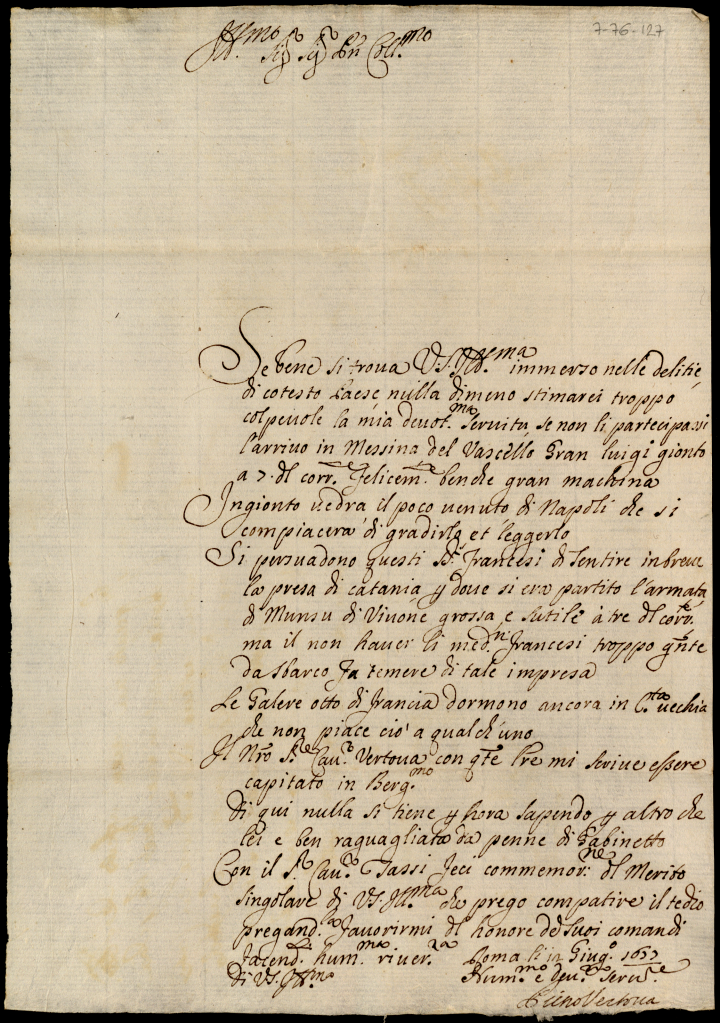 7-76-127
Ill.mo Sig.r Sig.r Pn Coll.mo
Se bene si troua V.S. Ill.ma immerso nelle delitie
di cotesto Paese nulla dimeno stimarei troppo
colpeuole la mia deuot.ma seruitu, se non li partecipassi
l'arriuo in Messina del Vascello Gran luigi gionto
a 7. dl corr.te felicem.te benche gran machina
Ingionto uedra il poco uenuto di Napoli che si
compiacera di gradirlo et leggerlo
Si persuadono questi SS.ri francesi di sentire in breue
la presa di catania p doue si era partito l'armata
di Munsu di Viuone grossa e sutile à tre dl corr.te
ma il non hauer li med.mi francesi troppo gnte
da sbarco fa temere di tale impresa
Le Galere otto di francia dormono ancora in C.ta uecchia
che non piace ciò a qualch'uno
Il Nro S.r Cau.r Vertoua con qste lre mi scriue essere
capitato in Berg.mo
Di qui nulla si tiene p hora sapendo p altro che
lei e ben raguagliata da penne di Gabinetto
Con il S.r Cau.r Tassi feci commemor.ne dl Merito
singolare di V.S. Ill.ma che prego compatire il tedio
pregand.la fauorirmi dl honore de suoi comandi
facend.li hum.ma riuer.za Roma li in Giug.o 1677
di V.S. Ill.ma Hum.mo e seru.re
Vertoua